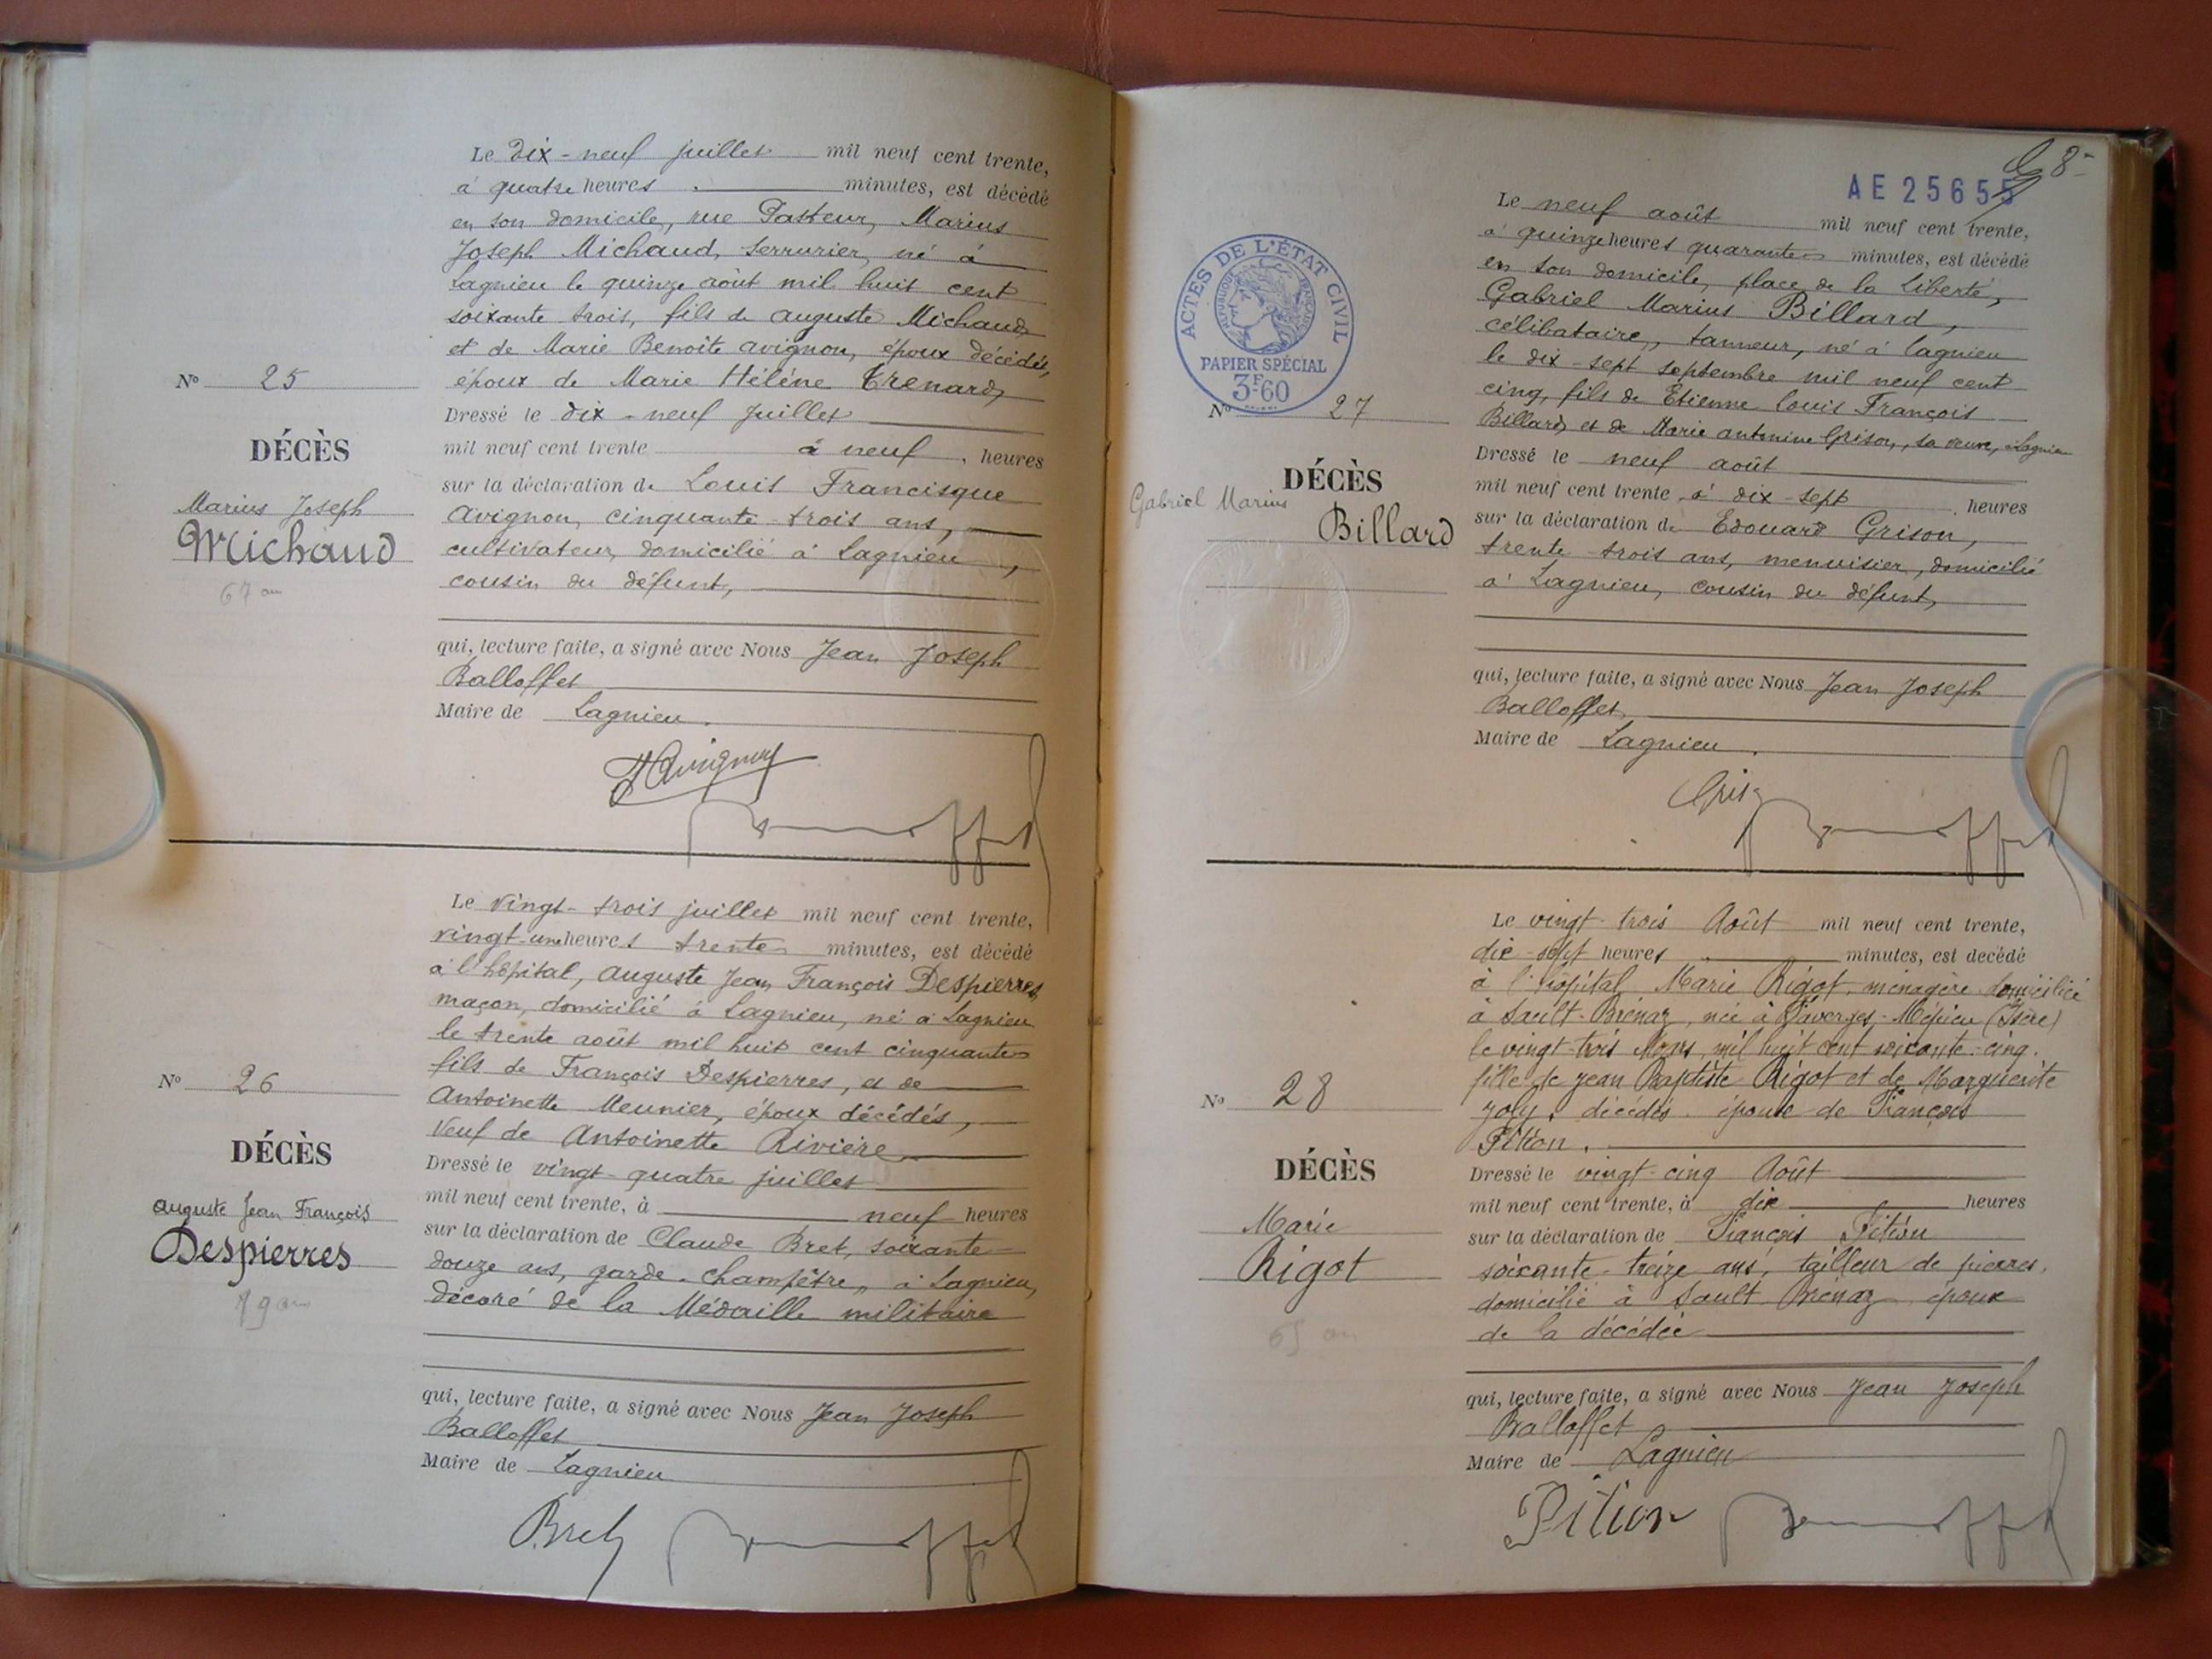 Le dix-neuf juillet mil neuf cent trente,
à quatre heures minutes, est décédé
en son domicile, rue Pasteur, Marius
Joseph Michaud, serrurier, né à
Lagnieu le quinze août mil huit cent
soixante trois, fils de Auguste Michaud
et de Marie Benoite Avignon, époux décédés,
époux de Marie Hélène Trenard,
Nº 25
DÉCÈS
Marius Joseph
Michaud
67 ans
Dressé le dix-neuf juillet
mil neuf cent trente à neuf heures
sur la déclaration de Louis Francisque
Avignon, cinquante-trois ans,
cultivateur, domicilié à Lagnieu,
cousin du défunt,
qui, lecture faite, a signé avec Nous Jean Joseph
Balloffet
Maire de Lagnieu.
Avignon
Le vingt-trois juillet mil neuf cent trente,
vingt-une heures trente minutes, est décédé
à l'hôpital, Auguste Jean François Despierres
maçon, domicilié à Lagnieu, né à Lagnieu
le trente août mil huit cent cinquante
fils de François Despierres, et de
Antoinette Meunier, époux décédés,
veuf de Antoinette Rivière
Nº 26
DÉCÈS
Auguste Jean François
Despierres
79 ans
Dressé le vingt-quatre juillet
mil neuf cent trente, à neuf heures
sur la déclaration de Claude Bret, soixante-
douze ans, garde-champêtre, à Lagnieu,
décoré de la Médaille militaire
qui, lecture faite, a signé avec Nous Jean Joseph
Balloffet
Maire de Lagnieu
Bret
8
AE 25655
ACTES DE L'ÉTAT CIVIL
RÉPUBLIQUE FRANÇAISE
PAPIER SPÉCIAL
3F60
Le neuf août mil neuf cent trente,
à quinze heures quarante minutes, est décédé
en son domicile, place de la Liberté,
Gabriel Marius Billard,
célibataire, tanneur, né à Lagnieu
le dix-sept septembre mil neuf cent
cinq, fils de Étienne Louis François
Billard et de Marie Antonine Grison, sa veuve, à Lagnieu
Nº 27
DÉCÈS
Gabriel Marius
Billard
Dressé le neuf août
mil neuf cent trente, à dix-sept heures
sur la déclaration de Edouard Grison,
trente-trois ans, menuisier, domicilié
à Lagnieu, cousin du défunt,
qui, lecture faite, a signé avec Nous Jean Joseph
Balloffet
Maire de Lagnieu.
Le vingt-trois Août mil neuf cent trente,
dix-sept heures minutes, est decédé
à l'hôpital Marie Rigot, ménagère domiciliée
à Sault-Brénaz, née à Faverges-Mépieu (Isère)
le vingt-trois Mars mil huit cent soixante-cinq.
fille de Jean Baptiste Rigot et de Marguerite
Joly, décédés. épouse de François
Pition.
Nº 28
DÉCÈS
Marie
Rigot
65 ans
Dressé le vingt-cinq Août
mil neuf cent trente, à dix heures
sur la déclaration de François Pition
soixante-treize ans, tailleur de pierres,
domicilié à Sault Brénaz époux
de la décédée
qui, lecture faite, a signé avec Nous Jean Joseph
Balloffet
Maire de Lagnieu
Pition